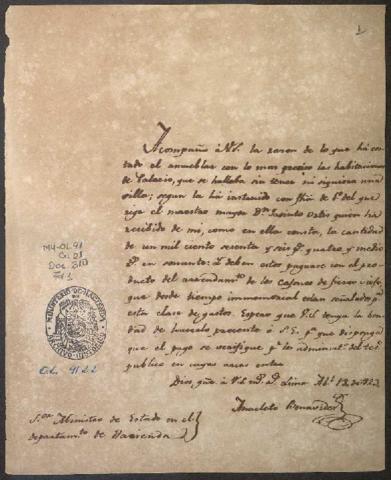 1
Acompaño à V.S. la razon de lo que há cos-
tado el amueblar con lo mas preciso las habitaciones
de Palacio, que se hallaba sin tener ni siquiera una
silla; segun la há instruido con fha de 6 del que
rige el maestro mayor Dn. Jacinto Ortiz quien ha
recibido de mi, como en ella consta, la cantidad
de un mil ciento sesenta y seis ps. quatro y medio
rs. en
deben estos pagarse con el pro-
ducto del arrendamto. de los Cajones de fierro viejo,
que desde tiempo immemorial estan señalados pa.
esta clase de gastos. Espero que V.S. tenga la bon-
dad de hacerlo presente à S.E. pa. que disponga
que el pago se verifique pr. los administs. del tesº
publico en cuyas arcas entra
Dios gue. à V.S. ms. as. Lima
12 de 822
Anacleto Benavides
Sor. Ministro de Estado en el
departamto. de Hacienda
MH-OL 41
Doc 310
MINISTERIO DE HACIENDA
ARCHIVO HISTORICO
O.L. 41-22